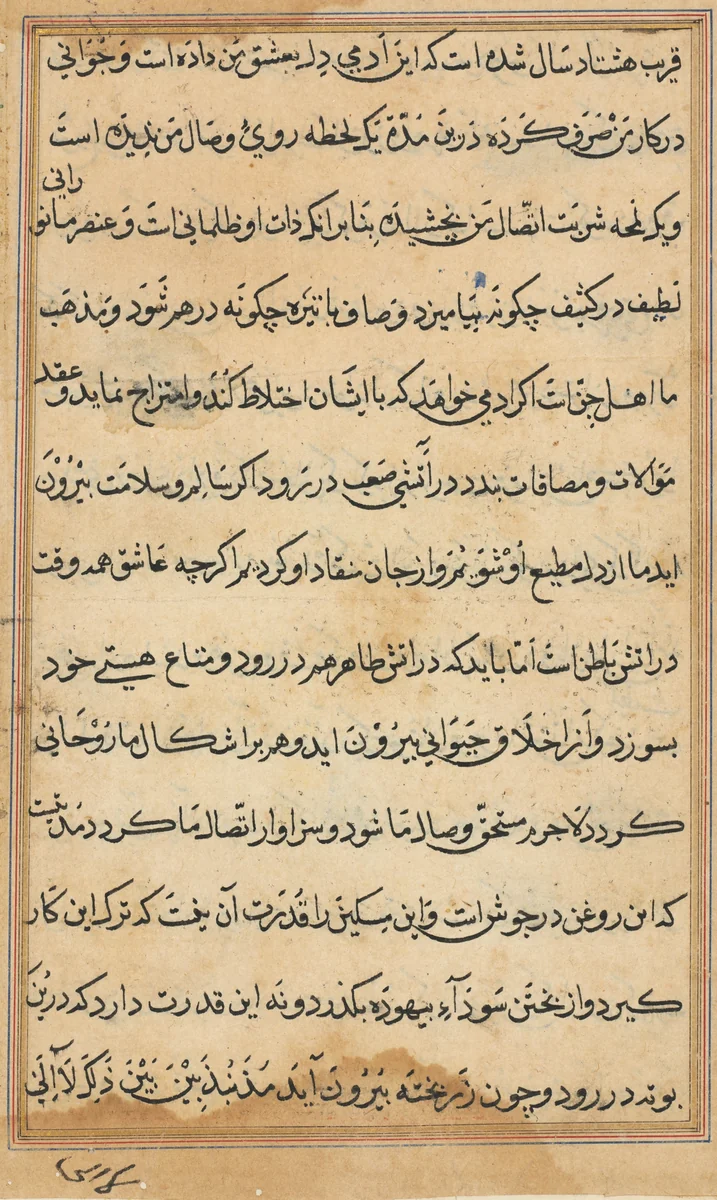 قریب هشتاد سال شده است که این آدمی دل بعشق من داده است و جوانی
در کار من صرف کرده درین مدّة یک لحظه روی وصال من ندیده است
ویک لمحه شربت اتّصال من نچشیده بنابرانکه ذات او ظلمانی است و عنصر ما نورانی
لطیف در کثیف چکونه بیامیزد و صاف با تیره چکونه درهم شود و بمذهب
ما اهل جن است اکر ادمی خواهد که با ایشان اختلاط کند و امتزاج نماید و عقد
موالات و مصافات بندد در آتشی صعب در رود اکر سالم و سلامت بیرون
اید ما از دل مطیع او شویم و از جان منقاد او کردیم اکرچه عاشق همه وقت
در اتش باطن است امّا باید که در اتش ظاهر هم در رود و متاع هیستی خود
بسوزد و از اخلاق حیوانی بیرون اید و هم بر اشکال ما روحانی
کردد لاجرم مستحقّ وصال ما شود و سزاوار اتّصال ما کردد مدتیست
که این روغن در جوش است و این مسکین را قدرت آن نیست که ترک این کار
کیرد و از پختن سودآء بیهوده بکذرد و نه این قدرت دارد که درین
بوته در رود و چون زر پخته بیرون آید مذبذبین بین ذلک لا الی